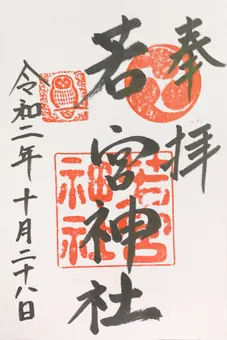 奉拝
若宮神社
若宮
神社
令和二年十月二十八日